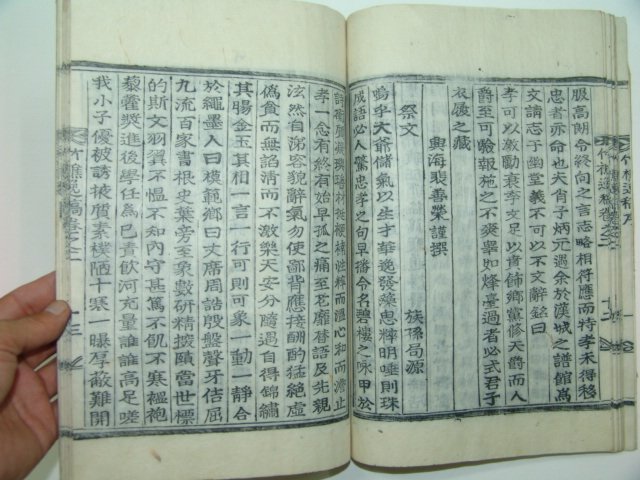 服高朗令終向之言志略相符應而特孝未得移
忠者亦命也夫肖子炳元遇余於漢城之譜館爲
文請志于幽堂義以同宗有不文辭銘曰
孝可以激勵衰季文足以賁飾鄉黨修天爵而人
爵至可驗報施之不爽睪如烽臺過者必式君子
衣履之藏
興海裴善榮謹撰
祭文
族孫尚源
嗚乎大爺儲氣以生才華晩發藻思粹明唾則珠
成語必人驚忠孝之句早播令名碧樓之咏甲於
而溫心和而澹止
孝一念有終有始早孤之痛至老靡替語及先親
泫然自涕容貌辭氣勿使鄙背應接酬酌猛絶虛
僞貧而無諂清而不激樂天安分隨遇自得錦繡
其膓金玉其相一言一行可則可象一動一靜合
於繩墨人曰模範鄉曰丈席周誥殷盤聲牙佶屈
九流百家書根史葉旁至象數硏精探賾當世標
的斯文羽翼不慍不知內守甚篤不飢不寒縕袍
藜藿奬進後學任爲己責飮河充量誰誰高足嗟
我小子優被誘掖質素樸陋十寒一曝厚蔽難開
竹樵逸稿卷之二
十三